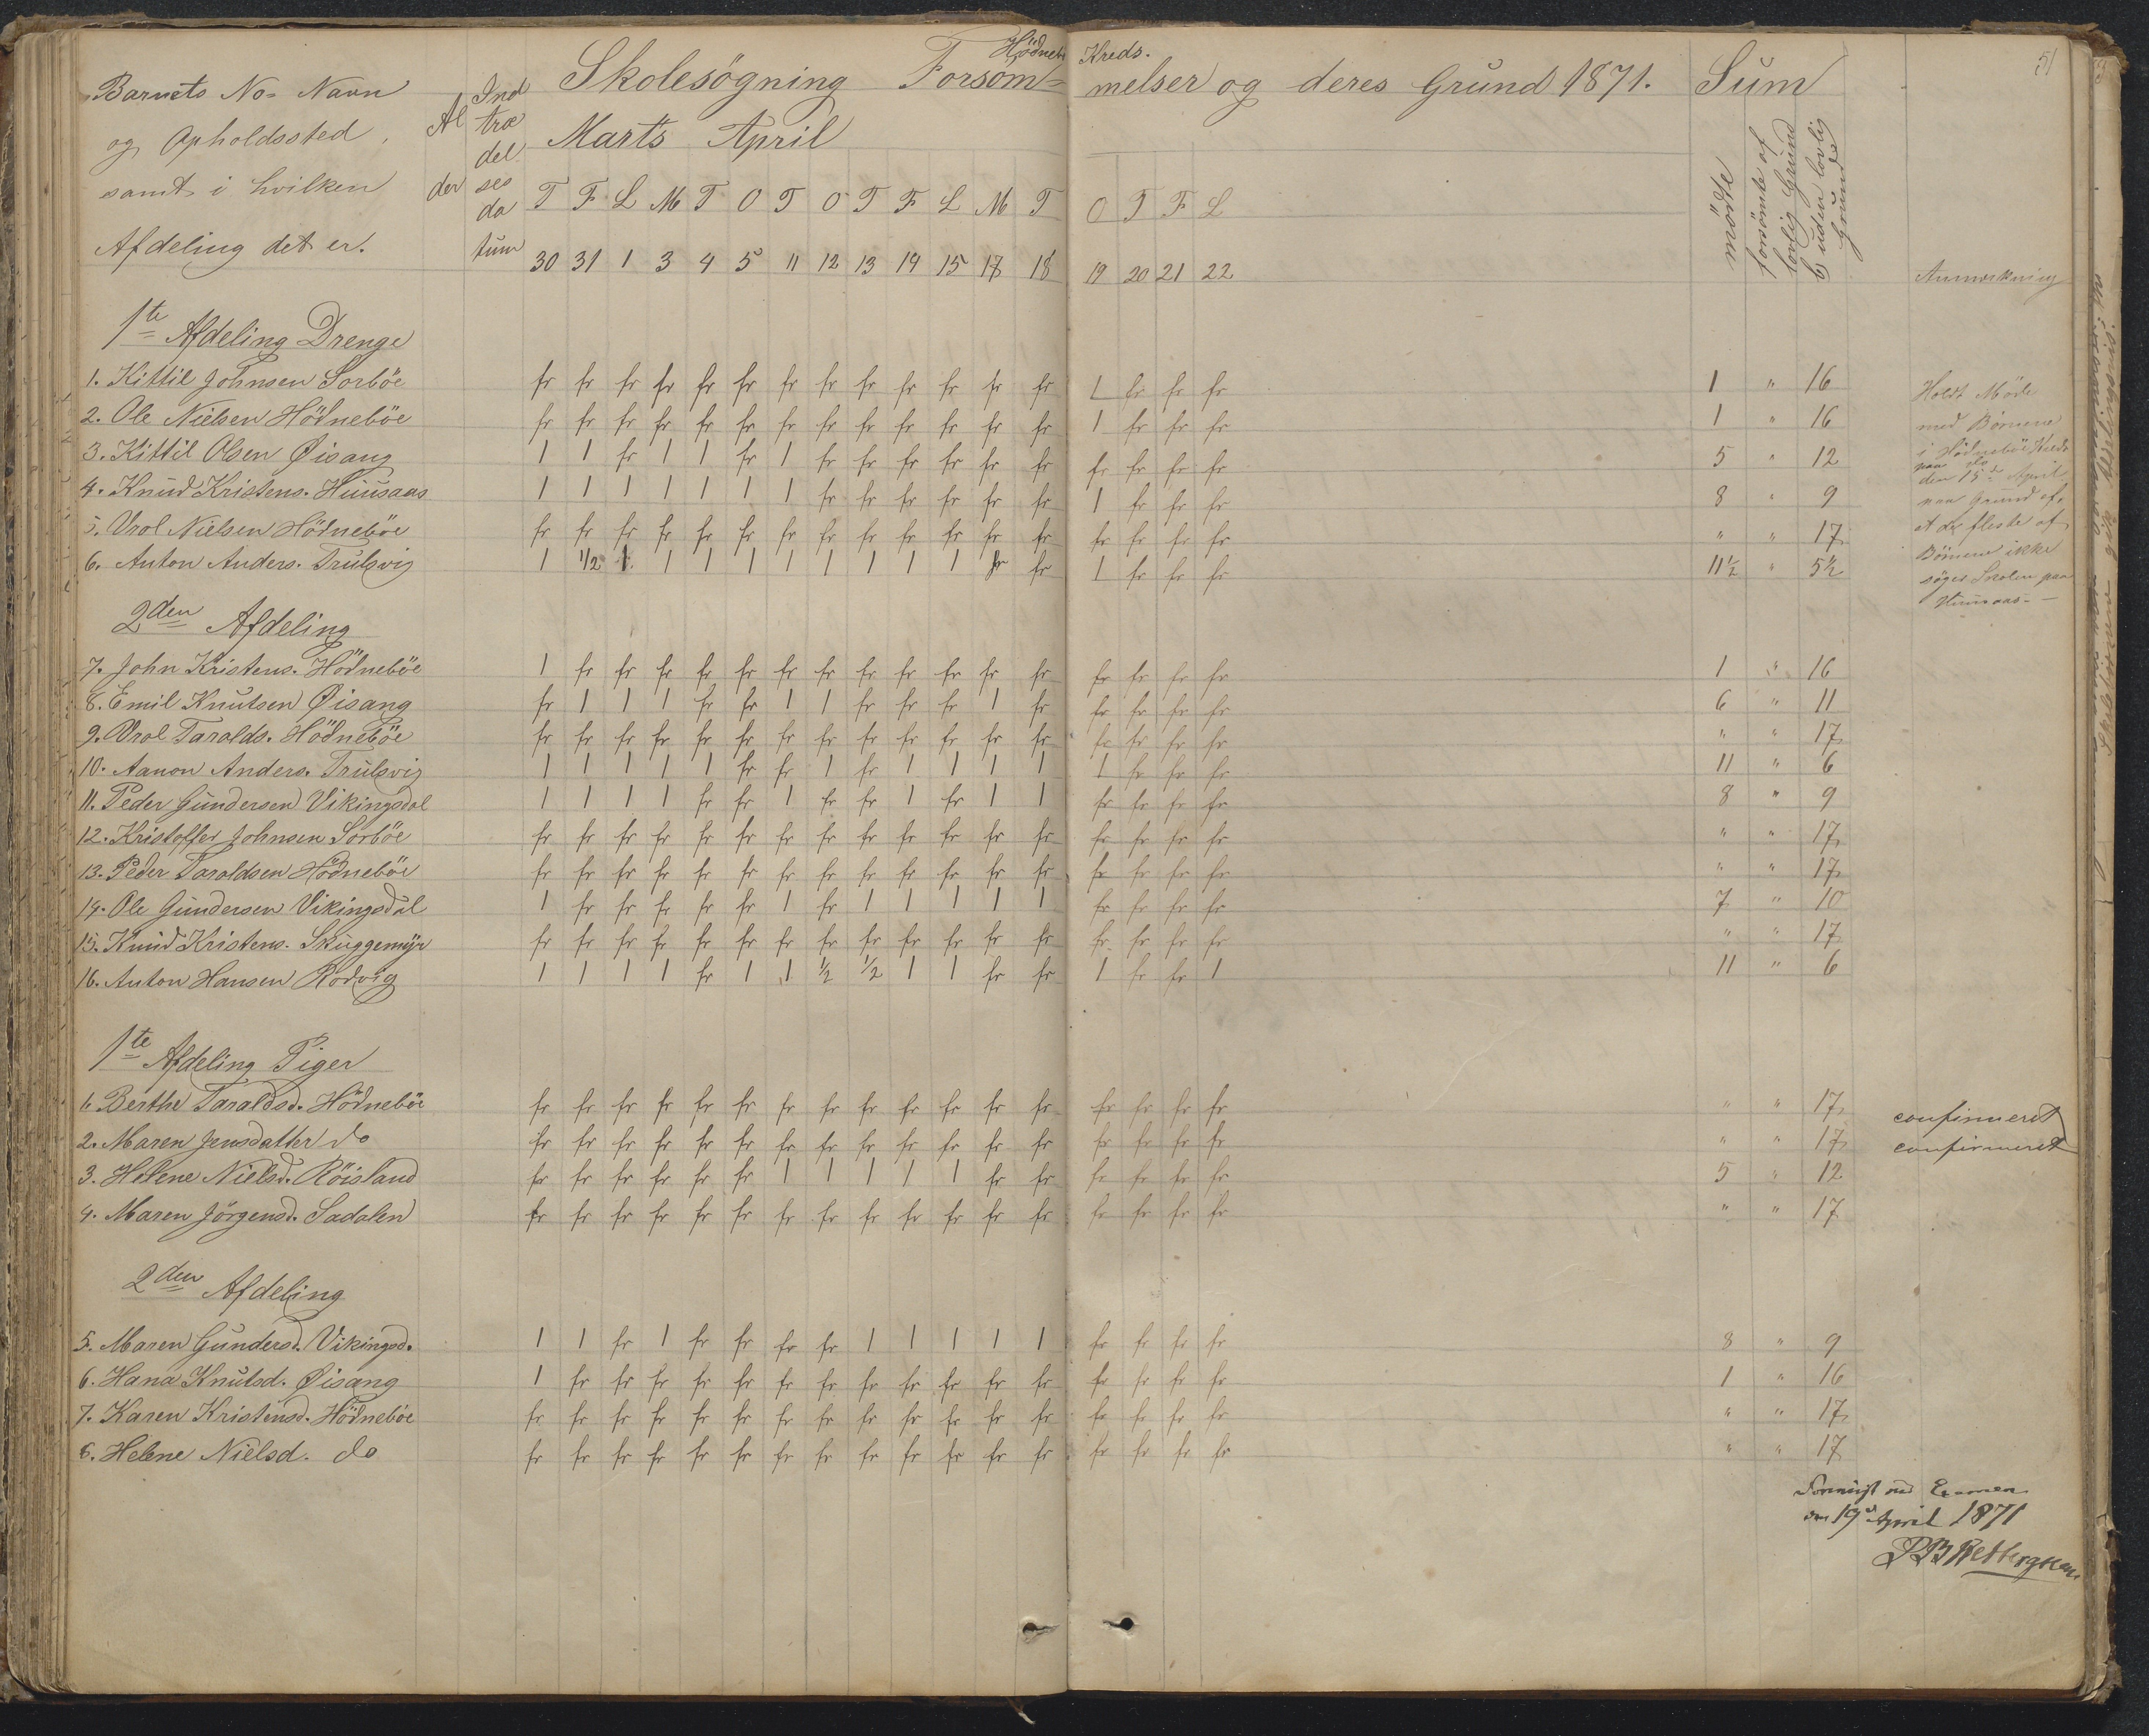 Hödneb Kreds.
51
Barnets No- Navn
og Opholdssted
samt i hvilken
Afdeling det er.
Al
der
Ind
træ
del
ses
da
tum
Skolesögning Forsöm= melser og deres Grund 1871. Sum
Marts April
T F L M T O T O T F L M T O T F L
30 31 1 3 4 5 11 12 13 14 15 17 18 19 20 21 22
mödte
forsömte af
lovlig Grund
b) uden lovlig
Grund
Anmærkning
1te Afdeling Drenge
1. Kittil Johnsen Sorböe fr fr fr fr fr fr fr fr fr fr fr fr fr 1 fr fr fr 1 " 16
2. Ole Nielsen Hödneböe fr fr fr fr fr fr fr fr fr fr fr fr fr 1 fr fr fr 1 " 16
3. Kittil Olsen Øisang 1 1 fr 1 1 fr 1 fr fr fr fr fr fr fr fr fr fr 5 " 12
4. Knud Kristens. Huusaas 1 1 1 1 1 1 1 fr fr fr fr fr fr 1 fr fr fr 8 " 9
5. Vrol Nielsen Hödneböe fr fr fr fr fr fr fr fr fr fr fr fr fr fr fr fr fr " " 17
6. Anton Anders. Trulsvig 1 1/2 1 1 1 1 1 1 1 1 1 fr fr 1 fr fr fr 11½ " 5½
Holdt Möde
med Börnene
i Hödneböe Kreds
den 15d April
paa Grund af,
at de fleste af
Börnene ikke
söger Skolen paa
Huusaas. —
2den Afdeling
7. John Kristens. Hödneböe 1 fr fr fr fr fr fr fr fr fr fr fr fr fr fr fr fr 1 " 16
8. Emil Knutsen Øisang fr 1 1 1 fr fr 1 1 fr fr fr 1 fr fr fr fr fr 6 " 11
9. Vrol Taralds. Hödneböe fr fr fr fr fr fr fr fr fr fr fr fr fr fr fr fr fr " " 17
10. Aanon Anders. Trulsvig 1 1 1 1 1 fr fr 1 fr 1 1 1 1 1 fr fr fr 11 " 6
11. Peder Gundersen Vikingsdal 1 1 1 1 fr fr 1 fr fr 1 fr 1 1 fr fr fr fr 8 " 9
12. Kristoffer Johnsen Sorböe fr fr fr fr fr fr fr fr fr fr fr fr fr fr fr fr fr " " 17
13. Peder Taraldsen Hödneböe fr fr fr fr fr fr fr fr fr fr fr fr fr fr fr fr fr " " 17
14. Ole Gundersen Vikingsdal 1 fr fr fr fr fr 1 fr 1 1 1 1 1 fr fr fr fr 7 " 10
15. Knud Kristens. Skuggemyr fr fr fr fr fr fr fr fr fr fr fr fr fr fr fr fr fr " " 17
16. Anton Hansen Rodvig 1 1 1 1 fr 1 1 ½ ½ 1 1 fr fr 1 fr fr 1 11 " 6
1te Afdeling Piger
1. Berthe Taraldsd. Hödneböe fr fr fr fr fr fr fr fr fr fr fr fr fr fr fr fr fr " " 17 confirmeret
2. Maren Jensdatter do fr fr fr fr fr fr fr fr fr fr fr fr fr fr fr fr fr " " 17 confirmeret
3. Helene Nielsd. Röisland fr fr fr fr fr fr 1 1 1 1 1 fr fr fr fr fr fr 5 " 12
4. Maren Jörgensd. Sadalen fr fr fr fr fr fr fr fr fr fr fr fr fr fr fr fr fr " " 17
2den Afdeling
5. Maren Gundersd. Vikingsd. 1 1 fr 1 fr fr fr fr 1 1 1 1 1 fr fr fr fr 8 " 9
6. Hana Knutsd. Øisang 1 fr fr fr fr fr fr fr fr fr fr fr fr fr fr fr fr 1 " 16
7. Karen Kristensd. Hödneböe fr fr fr fr fr fr fr fr fr fr fr fr fr fr fr fr fr " " 17
8. Helene Nielsd. do fr fr fr fr fr fr fr fr fr fr fr fr fr fr fr fr fr " " 17
Fremvist ved Examen
den 19d April 1871